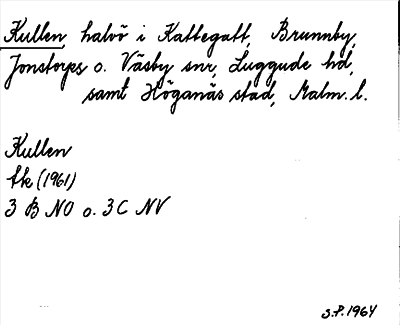 Kullen, halvö i Kattegatt, Brunnby,
Jonstorps o. Väsby snr, Luggude hd,
samt Höganäs stad, Malm. l.
Kullen
tk (1961)
3 B NO o. 3 C NV
S.P. 1964